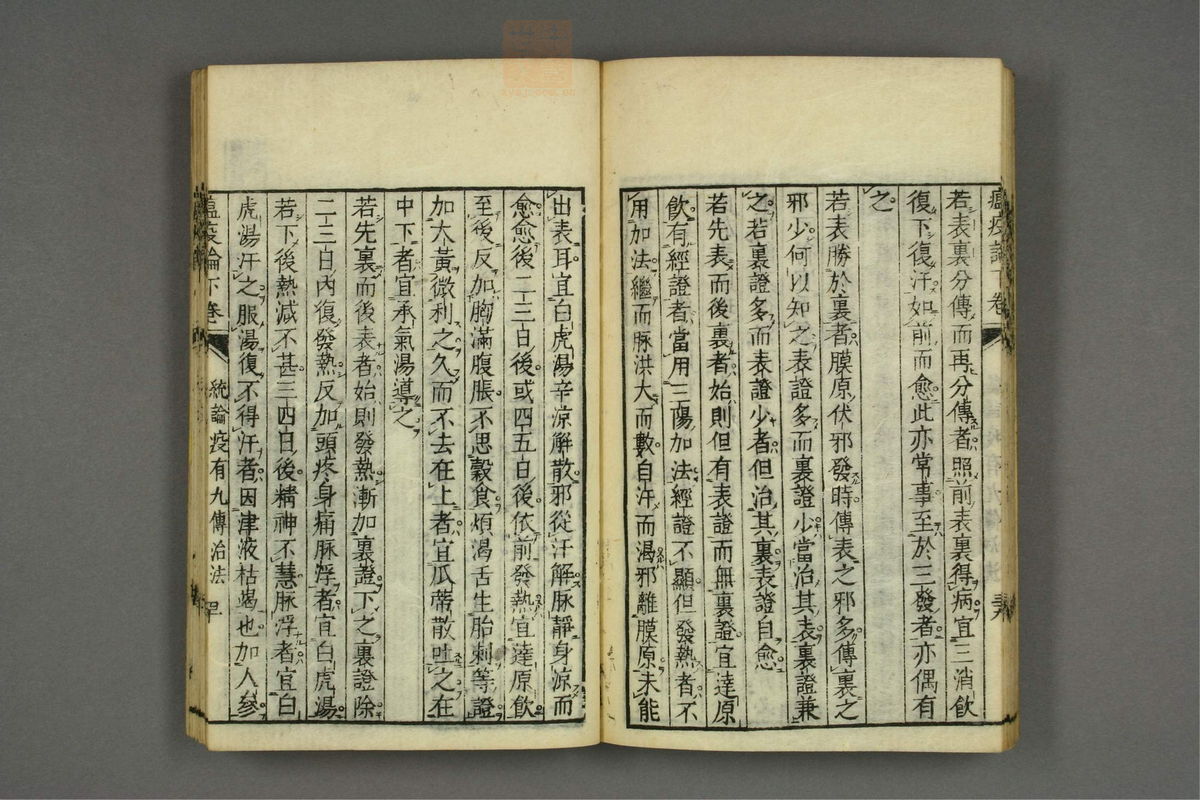 瘟疫論下卷
若表裏分傳而再分傳者照前表裏得病宜三消飲
復下復汗如前而愈此亦常事至於三發者亦偶有
之
若表勝於裏者膜原伏邪發時傳表之邪多傳裏之
邪少何以知之表證多而裏證少當治其表裏證兼
之若裏證多而表證少者但治其裏表證自愈
若先表而後裏者始則但有表證而無裏證宜達原
飲有經證者當用三陽加法經證不顯但發熱者不
用加法繼而脉洪大而數自汗而渴邪離膜原未能
出表耳宜白虎湯辛涼解散邪從汗解脉靜身涼而
愈愈後二三日後或四五日後依前發熱宜達原飲
至後反加胸滿腹脹不思穀食煩渴舌生胎刺等證
加大黃微利之久而不去在上者宜瓜蔕散吐之在
中下者宜承氣湯導之
若先裏而後表者始則發熱漸加裏證下之裏證除
二三日內復發熱反加頭疼身痛脉浮者宜白虎湯
若下後熱減不甚三四日後精神不慧脉浮者宜白
虎湯汗之服湯復不得汗者因津液枯竭也加人參
瘟疫論下卷 統論疫有九傳治法